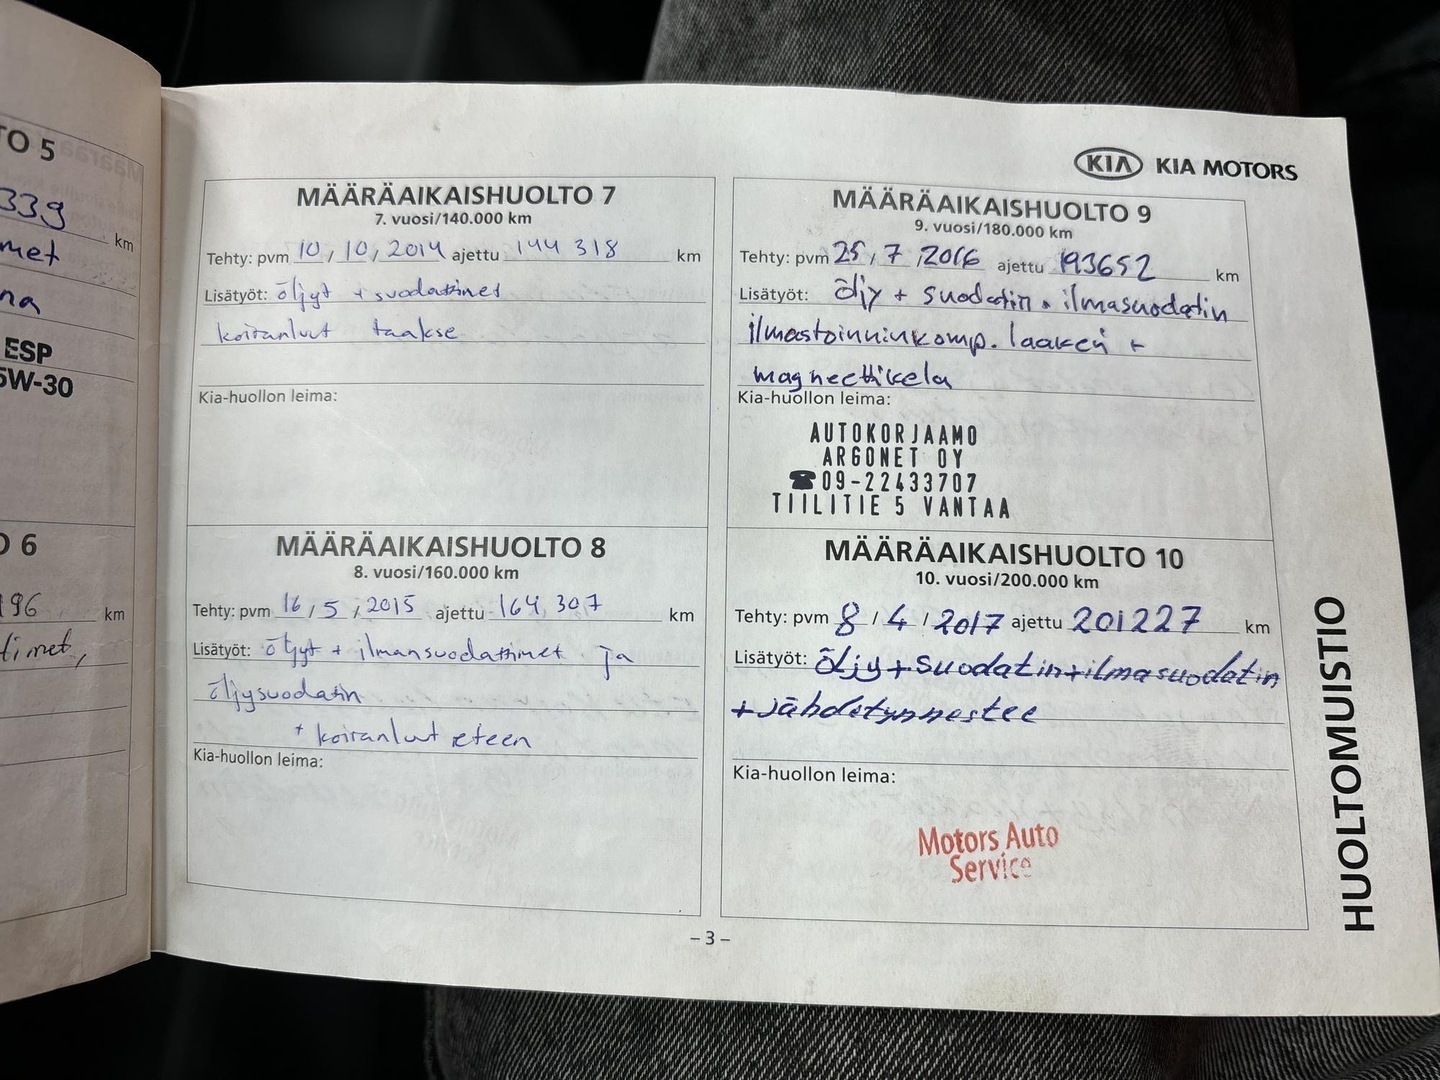 TO 5
339
km
met
na
ESP
5W-30
O 6
196
km
timet,
KIA KIA MOTORS
MÄÄRÄAIKAISHUOLTO 7
7. vuosi/140.000 km
Tehty: pvm 10 / 10 / 2014 ajettu 144 318 km
Lisätyöt: öljyt + suodattimet
koiranluut taakse
Kia-huollon leima:
MÄÄRÄAIKAISHUOLTO 8
8. vuosi/160.000 km
Tehty: pvm 16 / 5 / 2015 ajettu 164 307 km
Lisätyöt: öljyt + ilmansuodattimet ja
öljysuodatin
+ koiranluut eteen
Kia-huollon leima:
MÄÄRÄAIKAISHUOLTO 9
9. vuosi/180.000 km
Tehty: pvm 25 / 7 / 2016 ajettu 193652 km
Lisätyöt: öljy + suodatin + ilmasuodatin
ilmastoinninkomp. laakeri +
magneettikela
Kia-huollon leima:
AUTOKORJAAMO
ARGONET OY
☎09-22433707
TIILITIE 5 VANTAA
MÄÄRÄAIKAISHUOLTO 10
10. vuosi/200.000 km
Tehty: pvm 8 / 4 / 2017 ajettu 201227 km
Lisätyöt: öljy+suodatin+ilmasuodatin
+jähdetynnestee
Kia-huollon leima:
Motors Auto
Service
HUOLTOMUISTIO
– 3 –